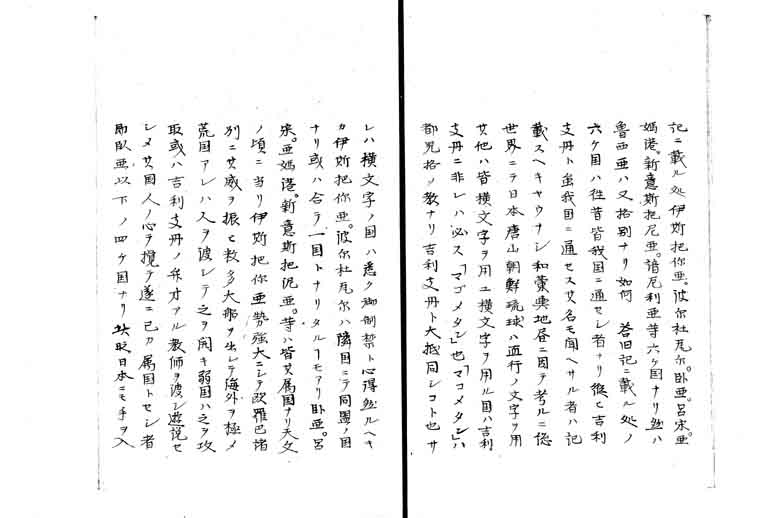 記ニ載ル処伊斯把你亜。波尔杜瓦尔。臥亜。呂宋亜。
媽港。新意斯把尼亜。諳厄利亜等六ケ国ナリ然ハ
魯西亜ハ又格別ナリ如何 答旧記ニ載ル処ノ
六ケ国ハ往昔皆我国ニ通セシ者ナリ縦ヒ吉利
支丹ト虽我国ニ通セス其名モ聞ヘサル者ハ記
載スヘキヤウナシ和蘭輿地図ニ因テ考ルニ總
世界ニテ日本唐山朝鮮琉球ハ通行ノ文字ヲ用
其他ハ皆横文字ヲ用ユ横文字ヲ用ル国ハ吉利
支丹ニ非レハ必ス「マゴメタン」也「マコメタン」ハ
都児格ノ教ナリ吉利支丹ト大抵同シコト也サ
レハ横文字ノ国ハ悉ク御制禁ト心得然ルヘキ
カ伊斯把你亜。波尔杜瓦尔ハ隣国ニテ同盟ノ国
ナリ或ハ合テ一国トナリタルヿモアリ臥亜。呂
宋。亜媽港。新意斯把泥亜。等ハ皆其属国ナリ天文
ノ頃ニ当リ伊斯把你亜勢強大ニシテ欧羅巴諸
別ニ其威ヲ振ヒ数多大船ヲ出シテ海外ヲ極メ
荒国アレハ人ヲ渡シテ之ヲ開キ弱国ハ之ヲ攻
取或ハ吉利支丹ノ弁才アル教師ヲ渡シ遊説セ
シメ其国人ノ心ヲ攪テ遂ニ己カ属国トセシ者
即臥亜以下ノ四ケ国ナリ其砌日本ニモ手ヲ入